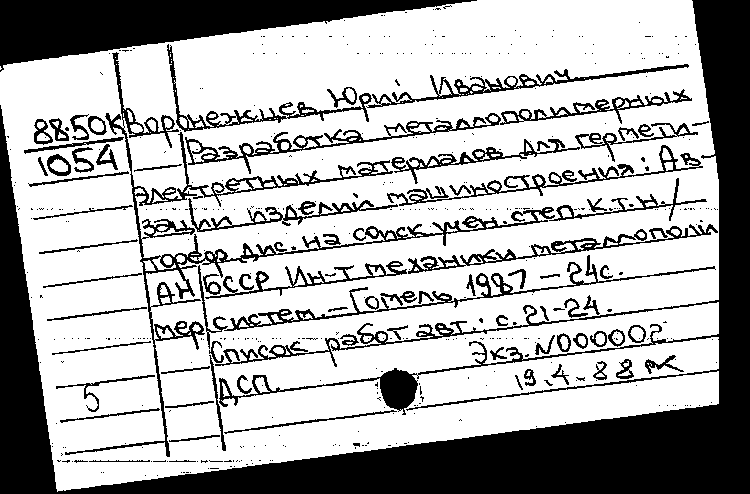 88.50К Воронежцев, Юрий Иванович
1054 Разработка металлополимерных
электретных материалов для гермети-
зации изделий машиностроения: Ав-
тореф дис. на соиск учен. степ. к.т.н. /
АН БССР, Ин-т механики металлополи
мер систем. – Гомель, 1987 – 24с.
Список работ авт.: с. 21-24.
ДСП. Экз. N000002
5 19.4-88